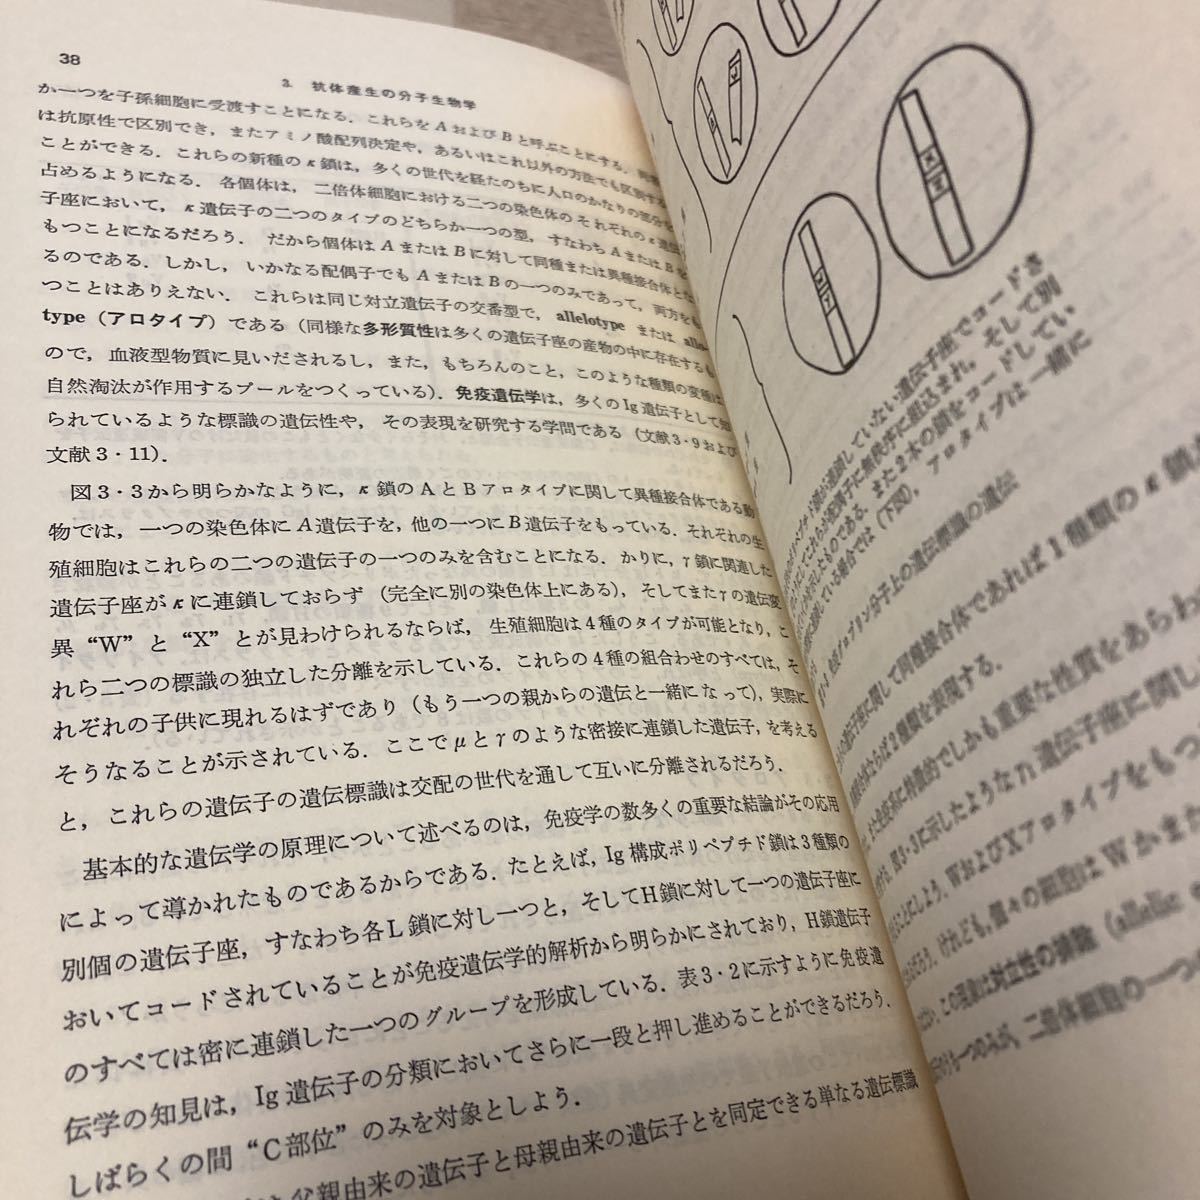 38
3. 抗体産生の分子生物学
か一つを子孫細胞に受渡すことになる．これらをAおよびBと呼ぶことにする．
は抗原性で区別でき，またアミノ酸配列決定や，あるいはこれ以外の方法でも区別する
ことができる．これらの新種のκ鎖は，多くの世代を経たのちに人口のかなりの部分を
占めるようになる．各個体は，二倍体細胞における二つの染色体のそれぞれのκ遺伝
子座において，κ遺伝子の二つのタイプのどちらか一つの型，すなわちAまたはBを
もつことになるだろう．だから個体はAまたはBに対して同種または異種接合体とな
るのである．しかし，いかなる配偶子でもAまたはBの一つのみであって，両方をも
つことはありえない．これらは同じ対立遺伝子の交番型で，allelotype または allo-
type（アロタイプ）である（同様な多形質性は多くの遺伝子座の産物の中に存在するも
ので，血液型物質に見いだされるし，また，もちろんのこと，このような種類の変種は
自然淘汰が作用するプールをつくっている）．免疫遺伝学は，多くのIg遺伝子として知
られているような標識の遺伝性や，その表現を研究する学問である（文献3・9および
文献3・11）．
図3・3から明らかなように，κ鎖のAとBアロタイプに関して異種接合体である動
物では，一つの染色体にA遺伝子を，他の一つにB遺伝子をもっている．それぞれの生
殖細胞はこれらの二つの遺伝子の一つのみを含むことになる．かりに，γ鎖に関連した
遺伝子座がκに連鎖しておらず（完全に別の染色体上にある），そしてまたγの遺伝変
異“W”と“X”とが見わけられるならば，生殖細胞は4種のタイプが可能となり，こ
れら二つの標識の独立した分離を示している．これらの4種の組合わせのすべては，そ
れぞれの子供に現れるはずであり（もう一つの親からの遺伝と一緒になって），実際に
そうなることが示されている．ここでμとγのような密接に連鎖した遺伝子，を考える
と，これらの遺伝子の遺伝標識は交配の世代を通して互いに分離されるだろう．
基本的な遺伝学の原理について述べるのは，免疫学の数多くの重要な結論がその応用
によって導かれたものであるからである．たとえば，Ig構成ポリペプチド鎖は3種類の
別個の遺伝子座，すなわち各L鎖に対し一つと，そしてH鎖に対して一つの遺伝子座に
おいてコードされていることが免疫遺伝学的解析から明らかにされており，H鎖遺伝子
のすべては密に連鎖した一つのグループを形成している．表3・2に示すように免疫遺
伝学の知見は，Ig遺伝子の分類においてさらに一段と押し進めることができるだろう．
しばらくの間“C部位”のみを対象としよう．
父親由来の遺伝子と母親由来の遺伝子とを同定できる単なる遺伝標識
連鎖していない遺伝子座でコードさ
配偶子に無秩序に組込まれ，そして別
ものである．また2本の鎖をコードしてい
場合では（下図），アロタイプは一緒に
分子上の遺伝標識の遺伝
遺伝子座に関して同種接合体であれば1種類のκ鎖
ならば2種類を表現する．
特徴的でしかも重要な性質をあらわ
図3・3に示したような 遺伝子座に関し
ことにしよう．WおよびXアロタイプをもつ
だろう．けれども，個々の細胞はWかまた
この現象は対立性の排除（allelic
一つのみが，二倍体細胞の一つの